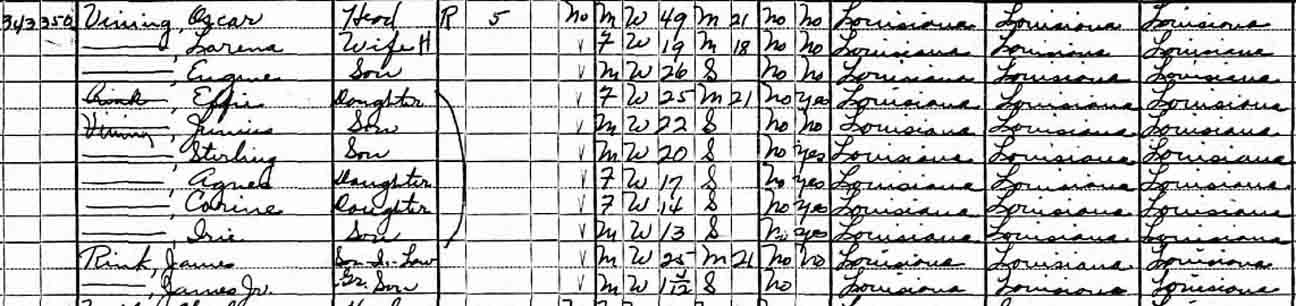 343 350 Vining, Oscar Head R 5 No M W 49 M 21 No No Louisiana Louisiana Louisiana
———, Larena Wife H V F W 19 M 18 No No Louisiana Louisiana Louisiana
———, Eugene Son V M W 26 S No No Louisiana Louisiana Louisiana
Rink, Effie Daughter V F W 25 M 21 No Yes Louisiana Louisiana Louisiana
Vining, Junius Son V M W 22 S No No Louisiana Louisiana Louisiana
———, Sterling Son V M W 20 S No Yes Louisiana Louisiana Louisiana
———, Agnes Daughter V F W 17 S No Yes Louisiana Louisiana Louisiana
———, Corine Daughter V F W 14 S No Yes Louisiana Louisiana Louisiana
———, Irie Son V M W 13 S No Yes Louisiana Louisiana Louisiana
Rink, James Son In Law V M W 25 M 21 No No Louisiana Louisiana Louisiana
———, James Jr. Gr. Son V M W S No Louisiana Louisiana Louisiana